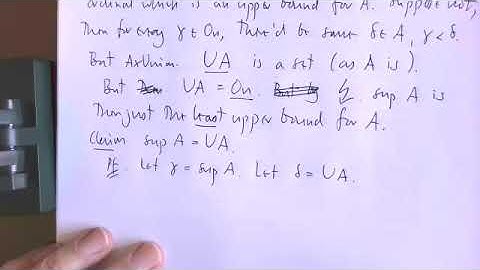 ordinal which is an upper bound for A. Suppose not,
Then for every γ ∈ On, there'd be some δ ∈ A, γ < δ.
But AxUnion. ∪A is a set (as A is).
But ∪A = On. ↯. sup A is
Then just the least upper bound for A.
Claim sup A = ∪A.
Pf. Let γ = sup A. Let δ = ∪A.